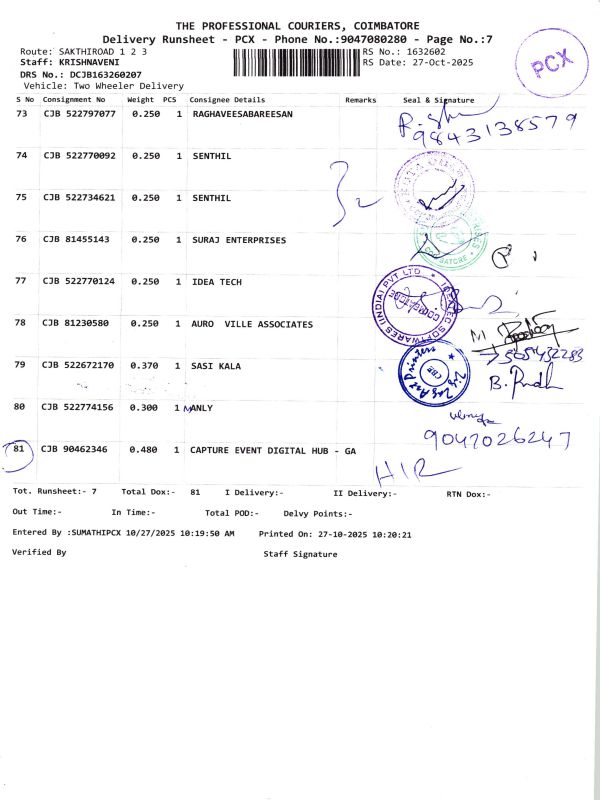 THE PROFESSIONAL COURIERS, COIMBATORE
Delivery Runsheet - PCX - Phone No.:9047080280 - Page No.:7
Route: SAKTHIROAD 1 2 3
RS No.: 1632602
Staff: KRISHNAVENI
RS Date: 27-Oct-2025
DRS No.: DCJB163260207
Vehicle: Two Wheeler Delivery
PCX
S No Consignment No Weight PCS Consignee Details Remarks Seal & Signature
73 CJB 522797077 0.250 1 RAGHAVEESABAREESAN
9843138579
74 CJB 522770092 0.250 1 SENTHIL
75 CJB 522734621 0.250 1 SENTHIL
76 CJB 81455143 0.250 1 SURAJ ENTERPRISES
COIMBATORE
77 CJB 522770124 0.250 1 IDEA TECH
SOFTWARES (INDIA) PVT LTD
COIMBATORE
78 CJB 81230580 0.250 1 AURO VILLE ASSOCIATES
79 CJB 522672170 0.370 1 SASI KALA
Zig Zag Art Printers
CBE
80 CJB 522774156 0.300 1 MANLY
9047026247
81 CJB 90462346 0.480 1 CAPTURE EVENT DIGITAL HUB - GA
Tot. Runsheet:- 7 Total Dox:- 81 I Delivery:- II Delivery:- RTN Dox:-
Out Time:- In Time:- Total POD:- Delvy Points:-
Entered By :SUMATHIPCX 10/27/2025 10:19:50 AM Printed On: 27-10-2025 10:20:21
Verified By Staff Signature